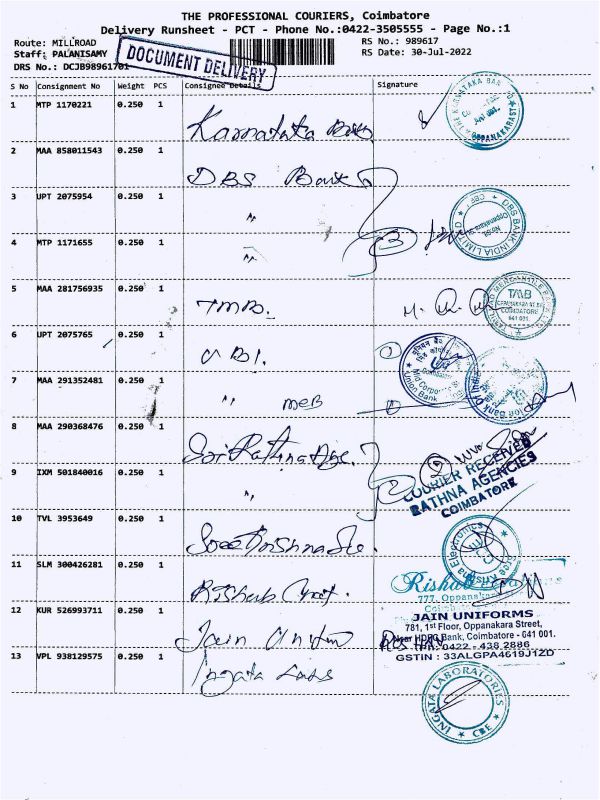 THE PROFESSIONAL COURIERS, Coimbatore
Delivery Runsheet - PCT - Phone No.:0422-3505555 - Page No.:1
Route: MILLROAD
RS No.: 989617
Staff: PALANISAMY
RS Date: 30-Jul-2022
DRS No.: DCJB98961701
DOCUMENT DELIVERY
S No Consignment No Weight PCS Consignee Details Signature
1 MTP 1170221 0.250 1 Karnataka Bank
2 MAA 858011543 0.250 1 DBS Bank
3 UPT 2075954 0.250 1 "
4 MTP 1171655 0.250 1 "
5 MAA 281756935 0.250 1 TMB.
6 UPT 2075765 0.250 1 UBI.
7 MAA 291352481 0.250 1 " MCB
8 MAA 290368476 0.250 1 Sri Rathna Age.
9 IXM 501840016 0.250 1 "
10 TVL 3953649 0.250 1 Sree Krishna Ele.
11 SLM 300426281 0.250 1 Rishab
12 KUR 526993711 0.250 1 Jain Uniform
13 VPL 938129575 0.250 1 Ingata Labs
THE KARNATAKA BANK
OPPANAKARA ST
DBS BANK INDIA LIMITED
CBE
TAMILNAD MERCANTILE BANK
TMB
OPPANAKARA ST
COIMBATORE
641 001.
Union Bank
Mid Corporate
COURIER RECEIVED
RATHNA AGENCIES
COIMBATORE
Sree Krishna Electronics
Rishab
777, Oppanakara
JAIN UNIFORMS
781, 1st Floor, Oppanakara Street,
Near HDFC Bank, Coimbatore - 641 001.
PH: 0422 - 438 2886
GSTIN : 33ALGPA4619J1ZD
INGATA LABORATORIES
CBE